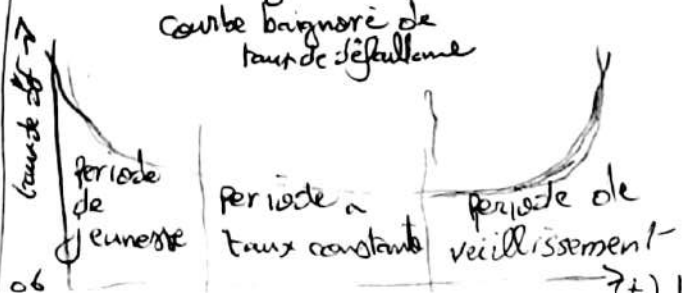 Courbe baignore de
taux de défaillance
taux de df →
Periode
de
jeunesse
periode a
taux constants
periode de
veillissement
06
t)